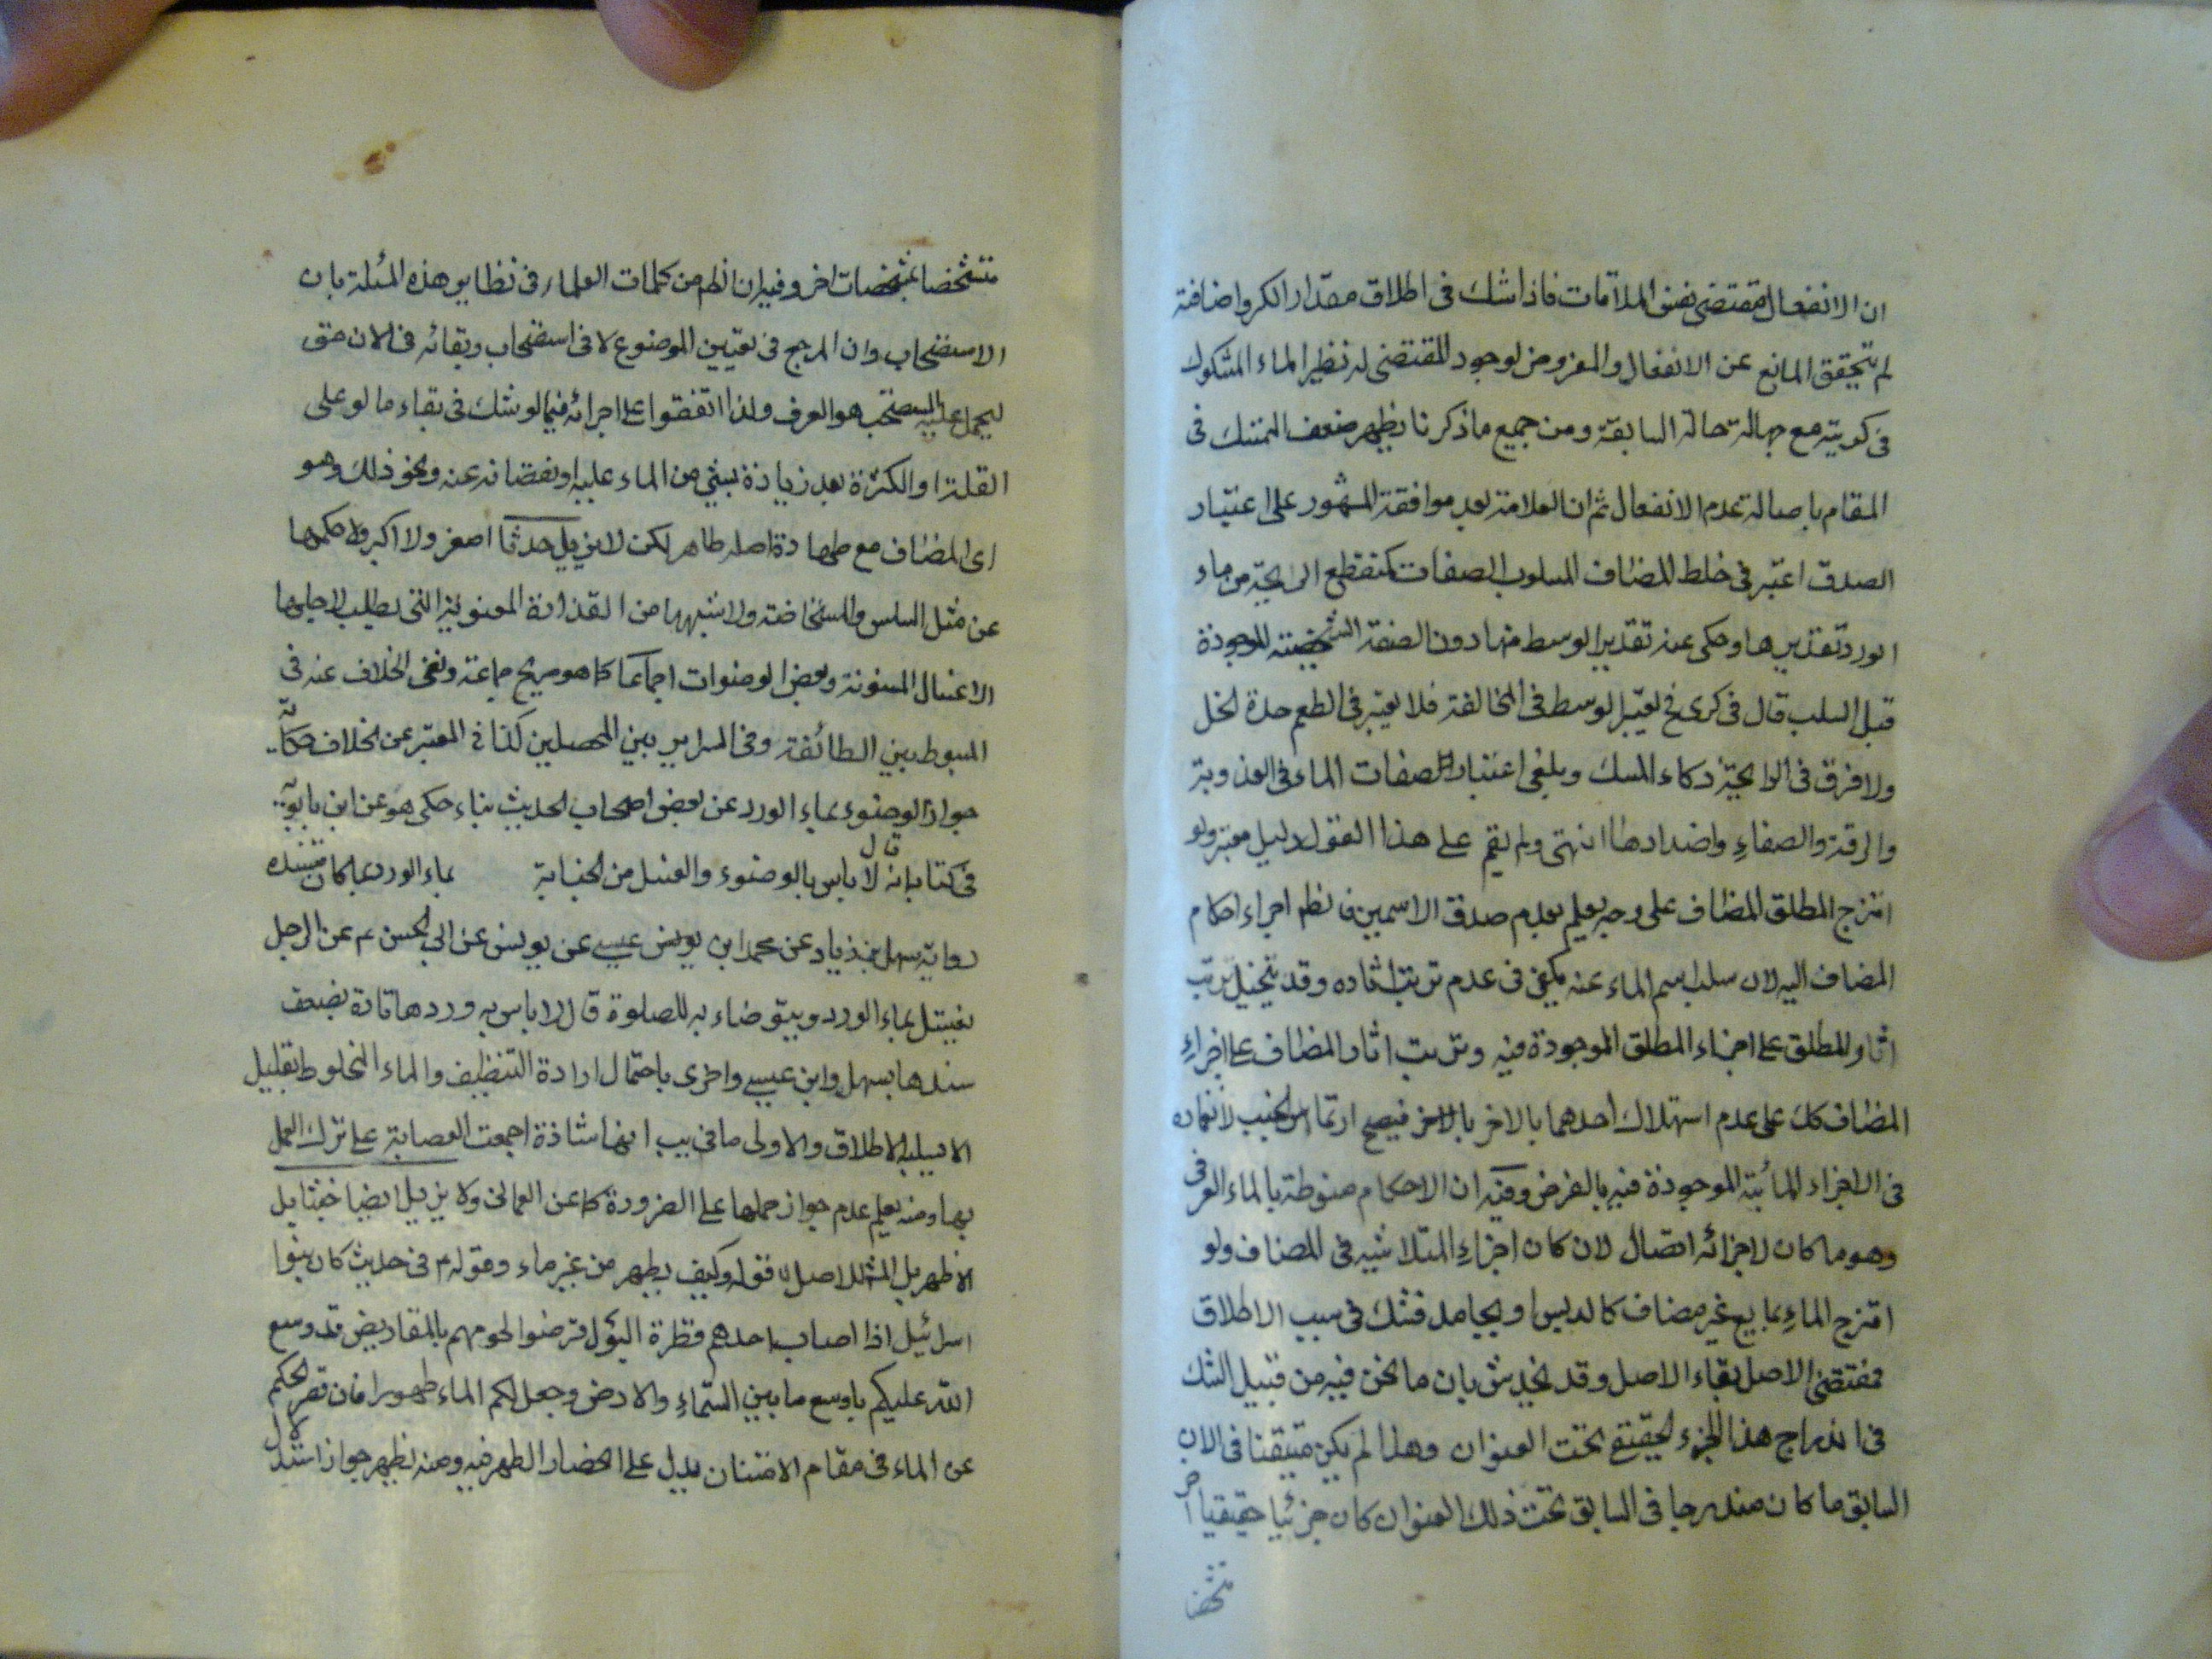 ان الانفعال مقتضى نفس الملاقات فاذا شك فى اطلاق مقدار الكر واضافته
لم يتحقق المانع عن الانفعال والمفروض لوجود المقتضى له نظير الماء المشكوك
فى كريته مع جهالة حالة السابقة ومن جميع ماذكرنا يظهر ضعف التمسك فى
المقام باصالة عدم الانفعال ثم ان العلامة بعد موافقة المشهور على اعتبار
الصدق اعتبر فى خلط المضاف المسلوب الصفات كمنقطع الرايحة من ماء
الورد تقديرها وحكى عنه تقدير الوسط منها دون الصفة الشخصية الموجودة
قبل السلب قال فى كرى فح يعتبر الوسط فى المخالفة فلا يعتبر فى الطعم حدة الخل
ولا فرق فى الرايحة ذكاء المسك وينبغى اعتبار صفات الماء فى العذوبة
والرقة والصفاء واضدادها انتهى ولم يقم على هذا القول دليل معتبر ولو
امتزج المطلق المضاف على وجه يعلم بعدم صدق الاسمين فا نظم اجراء احكام
المضاف اليه لان سلب اسم الماء عنه يكفى فى عدم ترتب اثاره وقد يتخيل ترتب
اثار المطلق على اجزاء المطلق الموجودة فيه وترتب اثار المضاف على اجزاء
المضاف كك على عدم استهلاك احدهما بالاخر فيصح ارتماس الجنب لانغماره
فى الاجزاء المائية الموجودة فيه بالفرض وفيه ان الاحكام منوطة بالماء العرفى
وهو ما كان لاجزائه اتصال لان كان اجزاء المتلاشيه فى المضاف ولو
امتزج الماء بمايع غير مضاف كالدبس او بجامد فشك فى سبب الاطلاق
فمقتضى الاصل بقاء الاصل وقد يخدش بان ما نحن فيه من قبيل الشك
فى اندراج هذا الجزء الحقيقى تحت العنوان وهذا لم يكن متيقنا فى الان
السابق ما كان مندرجا فى السابق تحت ذلك العنوان كان جزئيا حقيقيا اخر
متشخصا
متشخصا بمشخصات اخر وفيه ان الظم من كلمات العلماء فى نظاير هذه المسئلة بان
الاستصحاب وان المرجع فى تعيين الموضوع لا فى استصحاب وبقائه فى الان حتى
ليحمل عليه المستصحب هو العرف ولذا اتفقوا على اجرائه فيما لو شك فى بقاء ما لو على
القلة او الكثرة بعد زيادة شيئ من الماء عليه او نقصانه عنه ونحو ذلك وهو
اى المضاف مع طهارة اصله طاهر لكن لا يزيل حدثا اصغر ولا اكبر ولا حكمها
عن مثل السلس والمستحاضة ولا شبهها من القذارة المعنوية التى يطلب لاجلها
الاغسال المسنونة وبعض الوضوات اجماعا كما هو صريح جماعة ونفى الخلاف عنه فى
المبسوط بين الطائفة وفى السراير بين المحصلين كذا فى المعتبر عن الخلاف حكاية
جواز الوضوء بماء الورد عن بعض اصحاب الحديث بناء حكى هو عن ابن بابويه
فى كتابه انه قال لا باس بالوضوء والغسل من الجنابة بماء الورد مستنده
رواية سهل بن زياد عن محمد ابن يونس عيسى عن يونس عن ابى الحسن م عن الرجل
يغتسل بماء الورد ويتوضاء به للصلوة قال لا باس به وردها تارة بضعف
سندها بسهل وابن عيسى واخرى باحتمال ارادة التنظيف والماء المخلوط بقليل
لا يسلبه الاطلاق والاولى ما فى يب انها شاذة اجمعت العصابة على ترك العمل
بها ومنه يعلم عدم جواز حملها على الضرورة كما عن العمانى ولا يزيل ايضا خبثا بل
الاظهر بل المش للاصل فقوله وكيف يطهر من غير ماء وقوله م فى حديث كان بنوا
اسرائيل اذا اصاب احدهم قطرة البول قرضوا لحومهم بالمقاريض قد وسع
الله عليكم باوسع ما بين السماء والارض وجعل لكم الماء طهورا فان قصر الحكم
عن الماء فى مقام الامتنان يدل على انحضار الطهر فيه ومنه يظهر جواز استدلال